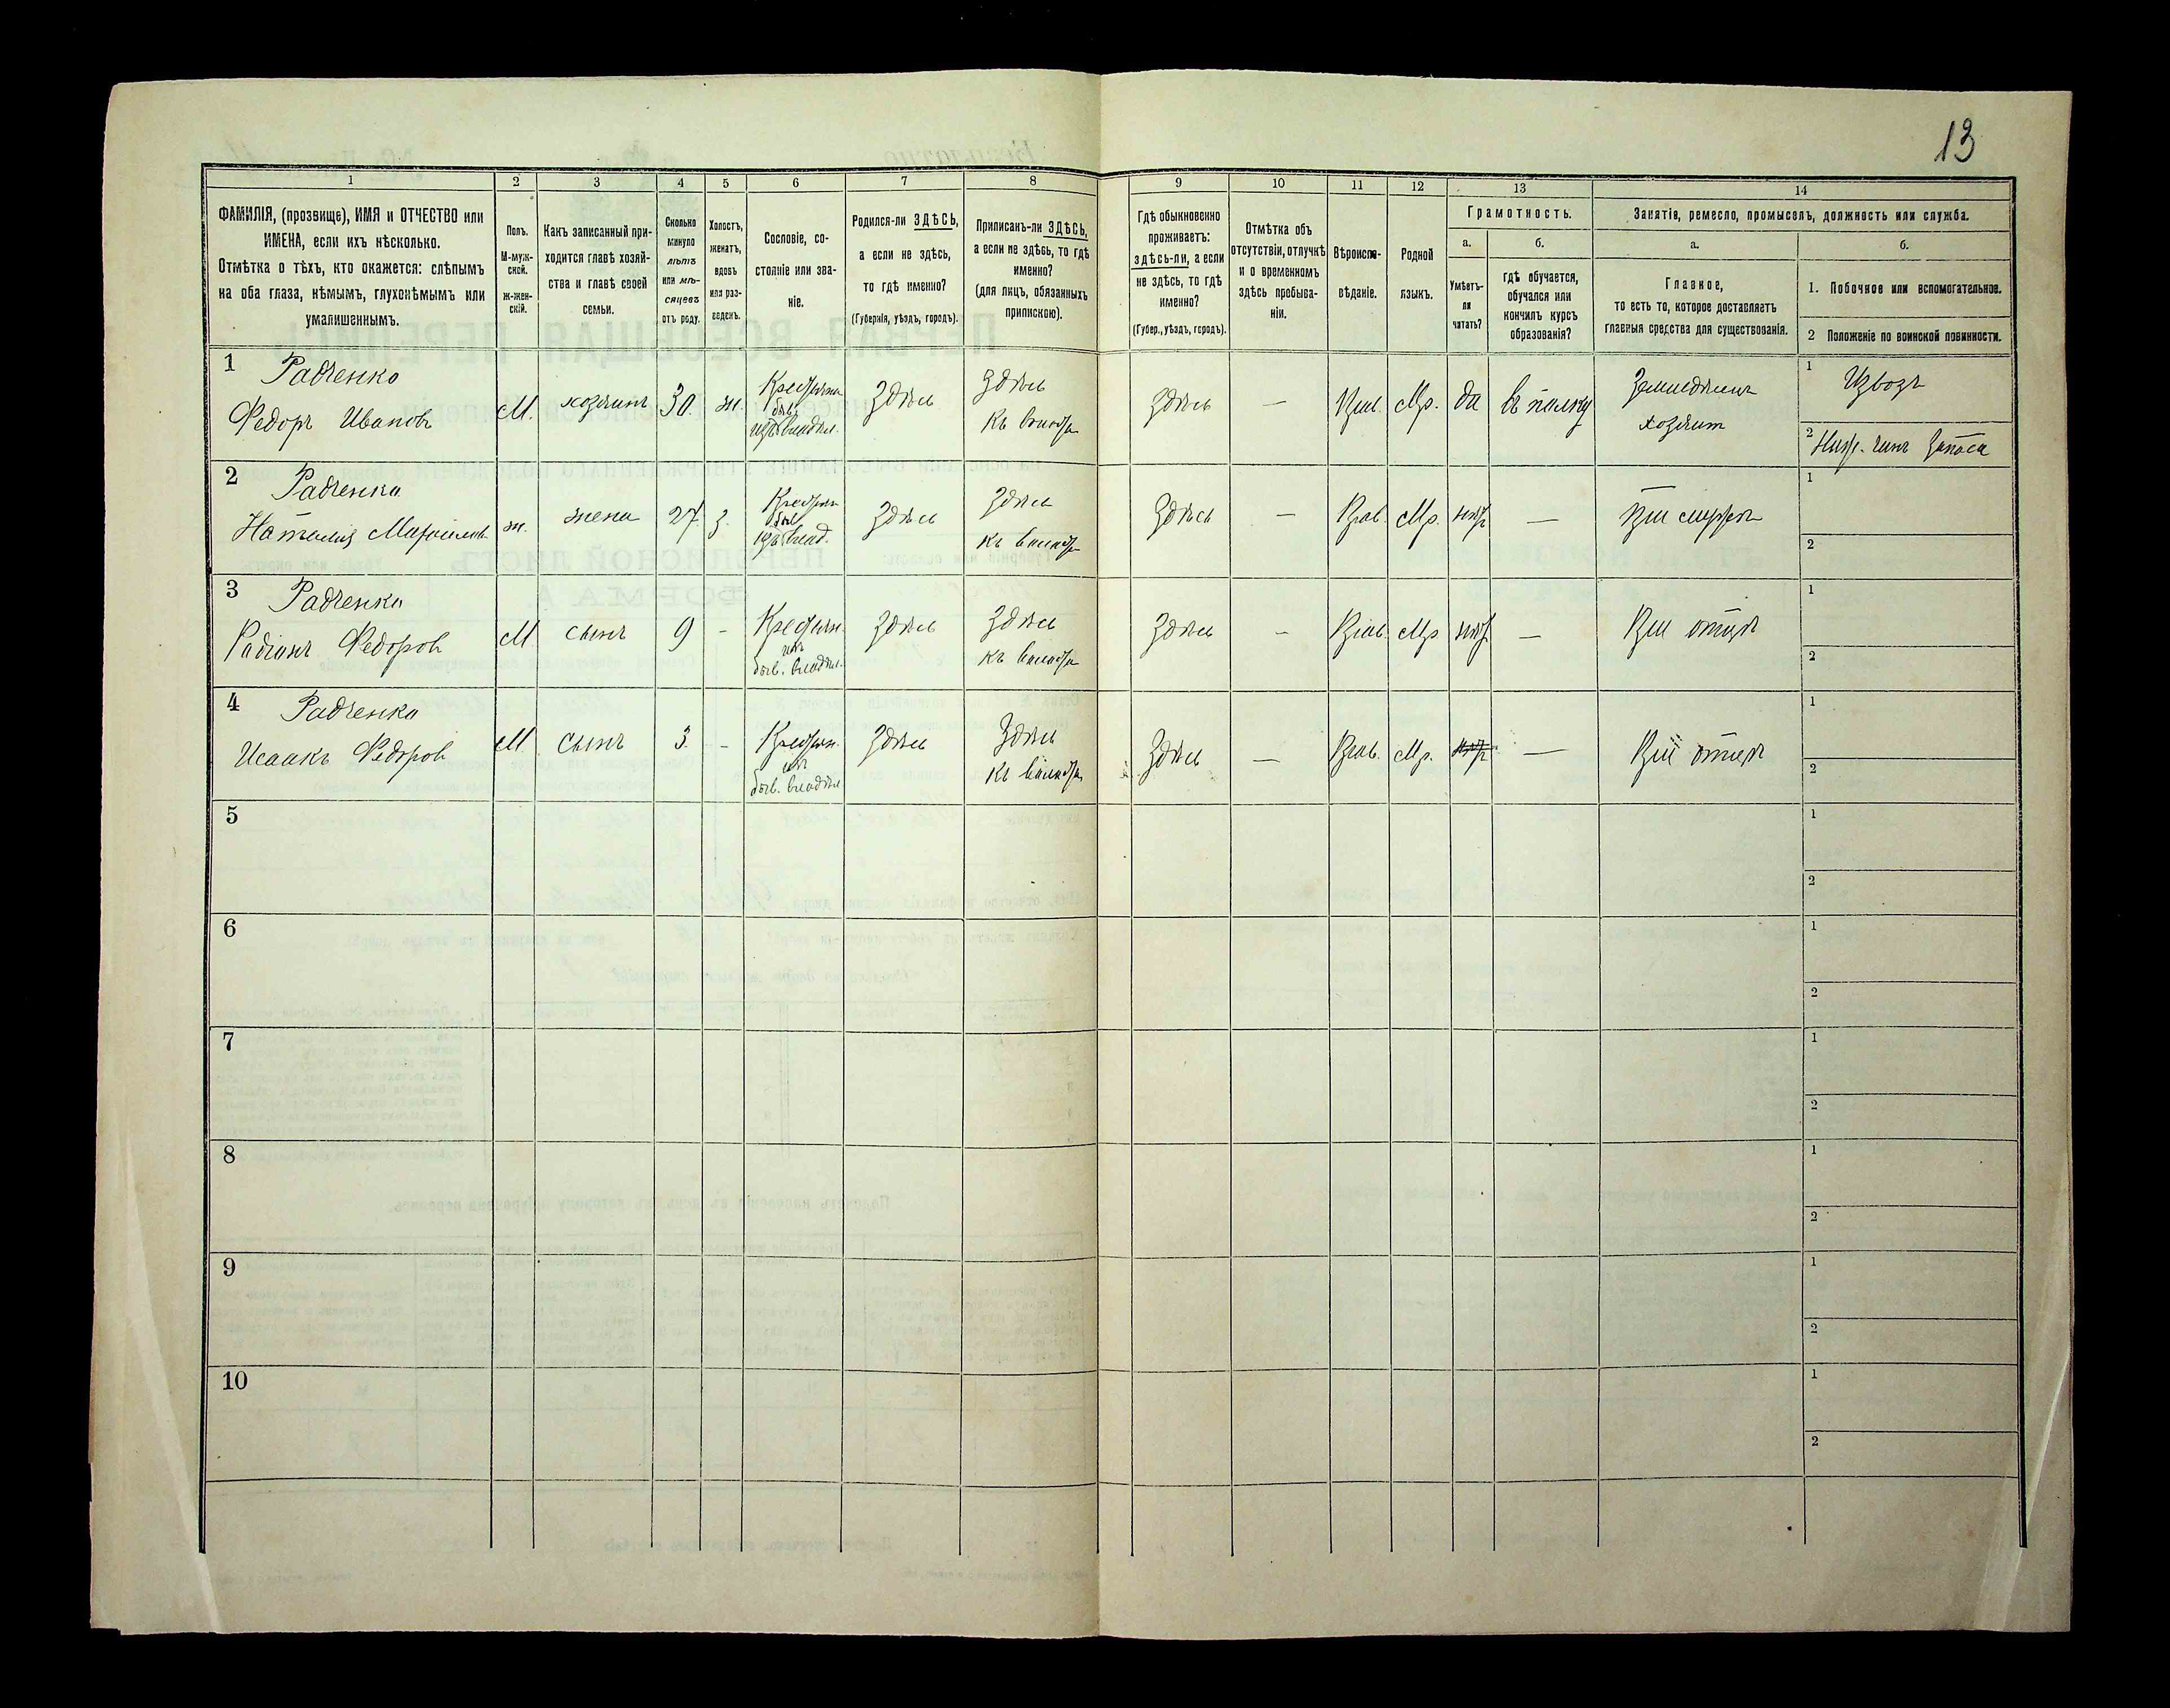 13
1
2
3
4
5
6
7
8
9
10
11
12
13
14
ФАМИЛІЯ, (прозвище), ИМЯ и ОТЧЕСТВО или
ИМЕНА, если ихъ нѣсколько.
Отмѣтка о тѣхъ, кто окажется: слѣпымъ
на оба глаза, нѣмымъ, глухонѣмымъ или
умалишеннымъ.
Полъ.
М-муж-
ской.
Ж-жен-
скій.
Какъ записанный при-
ходится главѣ хозяй-
ства и главѣ своей
семьи.
Сколько
минуло
лѣтъ
или мѣ-
сяцевъ
отъ роду.
Холостъ,
женатъ,
вдовъ
или раз-
веденъ.
Сословіе, со-
стояніе или зва-
ніе.
Родился-ли ЗДѢСЬ,
а если не здѣсь,
то гдѣ именно?
(Губернія, уѣздъ, городъ).
Приписанъ-ли ЗДѢСЬ,
а если не здѣсь, то гдѣ
именно?
(для лицъ, обязанныхъ
припискою).
Гдѣ обыкновенно
проживаетъ:
здѣсь-ли, а если
не здѣсь, то гдѣ
именно?
(Губер., уѣздъ, городъ).
Отмѣтка объ
отсутствіи, отлучкѣ
и о временномъ
здѣсь пребыва-
ніи.
Вѣроиспо-
вѣданіе.
Родной
языкъ.
Грамотность.
а.
б.
Умѣетъ-
ли
читать?
Гдѣ обучается,
обучался или
кончилъ курсъ
образованія?
Занятіе, ремесло, промыселъ, должность или служба.
а.
б.
Главное,
то есть то, которое доставляетъ
главныя средства для существованія.
1. Побочное или вспомогательное.
2 Положеніе по воинской повинности.
1
Радченко
Федоръ Ивановъ
М.
хозяинъ
30.
ж.
Крестьян.
быв.
изъ владѣл.
Здѣсь
Здѣсь
къ волости
Здѣсь
—
Прав.
Мр.
да
въ полку
Земледѣлецъ
хозяинъ
1
Извозъ
2
Нижн. чинъ запаса
2
Радченко
Наталія
ж.
жена
27
з.
Крестьян.
быв.
изъ влад.
Здѣсь
Здѣсь
къ волости
Здѣсь
—
Прав.
Мр.
нѣт
—
При мужѣ
1
2
3
Радченко
Радіонъ Федоров
М
сынъ
9
-
Крестьян.
изъ
быв. владѣл.
Здѣсь
Здѣсь
къ волости
Здѣсь
—
Прав.
Мр
нѣт
—
При отцѣ
1
2
4
Радченко
Исаакъ Федоров
М
сынъ
3.
-
Крестьян.
изъ
быв. владѣл
Здѣсь
Здѣсь
къ волости
Здѣсь
—
Прав.
Мр.
нѣт
—
При отцѣ
1
2
5
1
2
6
1
2
7
1
2
8
1
2
9
1
2
10
1
2